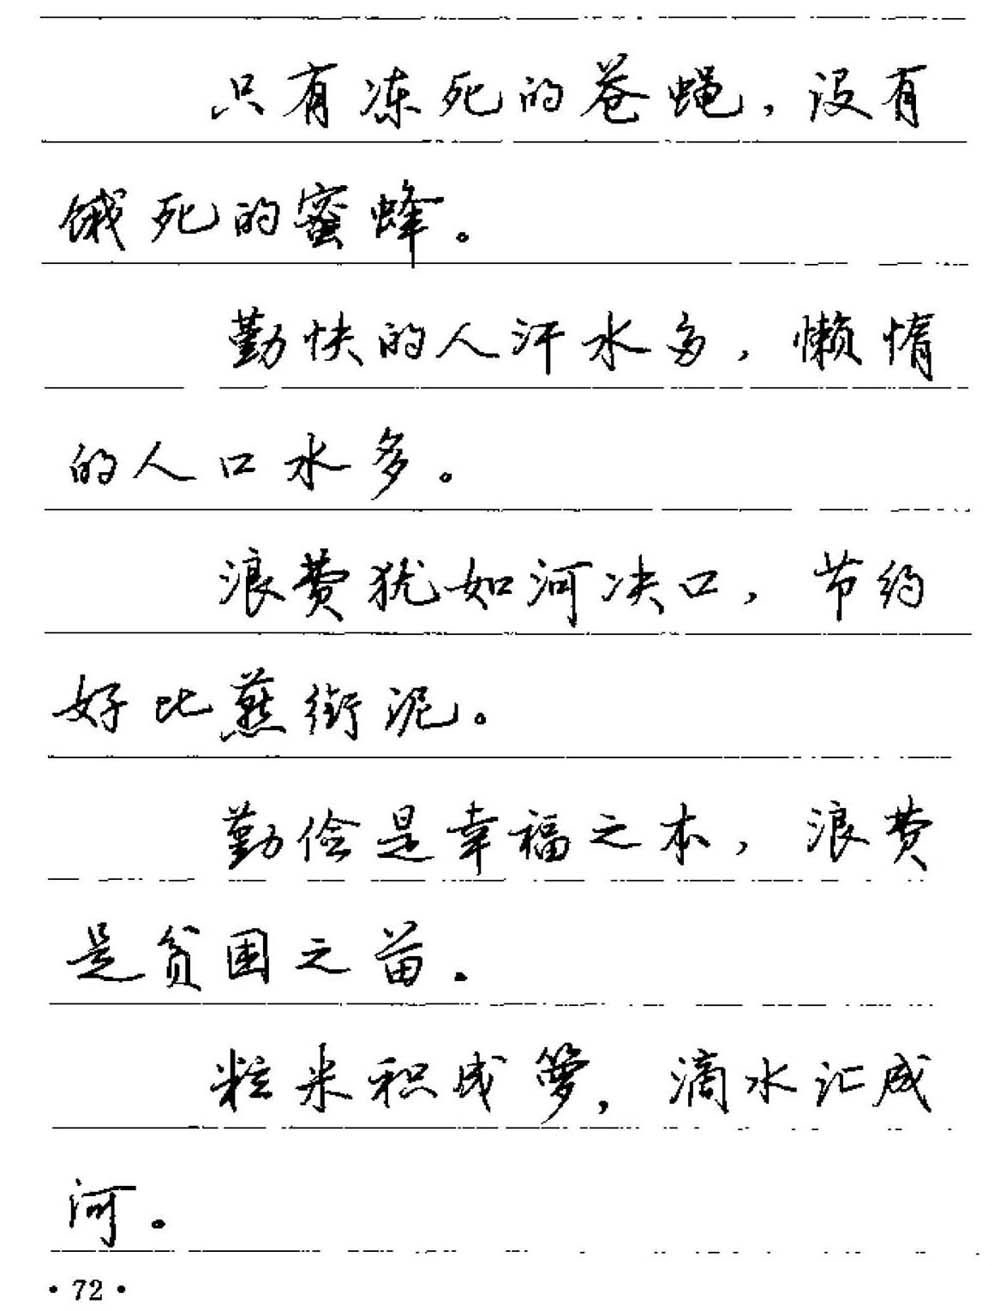 只有冻死的苍蝇，没有
饿死的蜜蜂。
勤快的人汗水多，懒惰
的人口水多。
浪费犹如河决口，节约
好比燕衔泥。
勤俭是幸福之本，浪费
是贫困之苗。
粒米积成箩，滴水汇成
河。
·72·